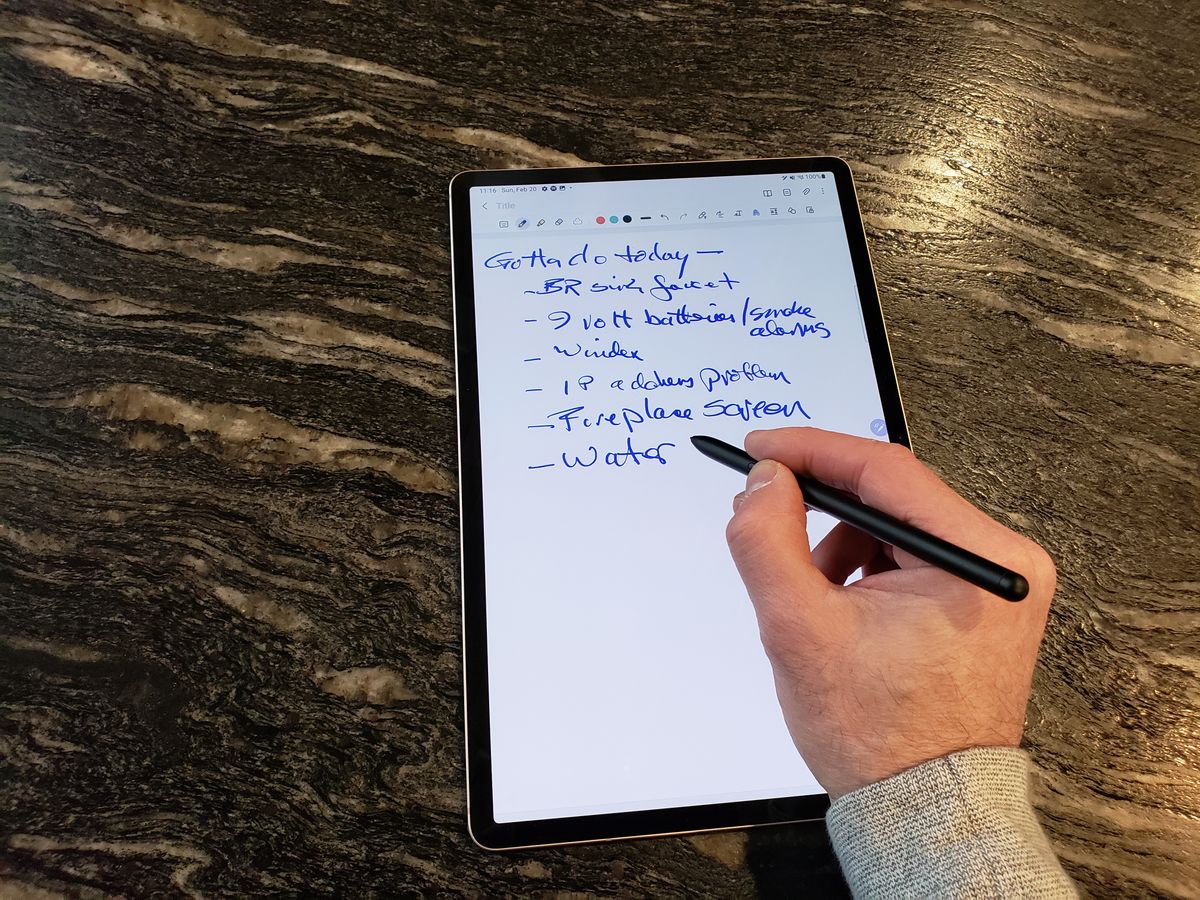 11:16 Sun, Feb 20 100%
Title
Gotta do today —
- BR sink faucet
- 9 volt batteries/smoke
alarms
- Windex
- IP address problem
- Fireplace Screen
- Water